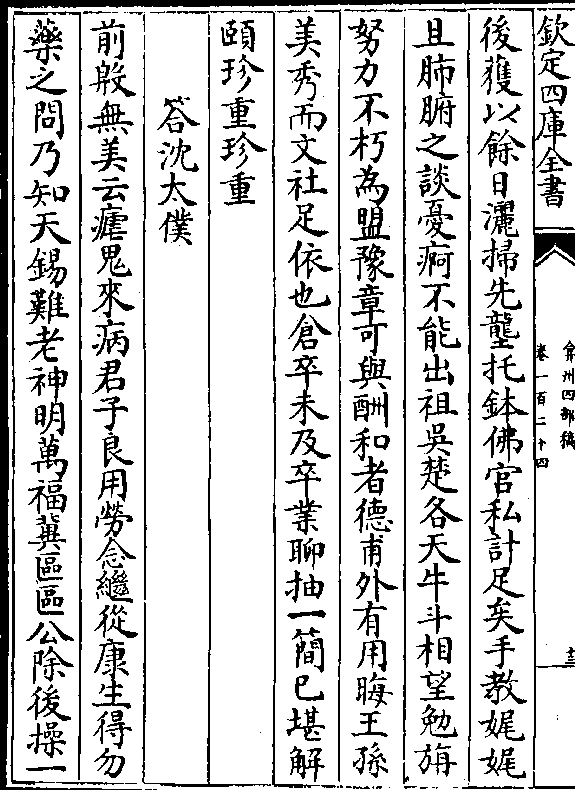 欽定四庫全書
弇州四部稿
卷一百二十四
十三
後獲以餘日灑掃先壟托鉢佛官私計足矣手教娓娓
且肺腑之談憂痾不能出祖吳楚各天牛斗相望勉旃
努力不朽為盟豫章可與酬和者德甫外有用晦王孫
美秀而文社足依也倉卒未及卒業聊抽一簡已堪解
頤珍重珍重
答沈太僕
前殷無美云瘧鬼來病君子良用勞念繼從康生得勿
藥之問乃知天錫難老神明萬福冀區區公除後操一